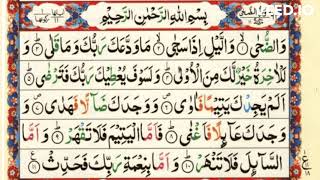 بِسْمِ اللّٰهِ الرَّحْمٰنِ الرَّحِيْمِ
وَالضُّحٰى ۙ وَالَّيْلِ اِذَا سَجٰى ۙ مَا وَدَّعَكَ رَبُّكَ وَمَا قَلٰى ؕ وَ
لَلْاٰخِرَةُ خَيْرٌ لَّكَ مِنَ الْاُوْلٰى ؕ وَلَسَوْفَ يُعْطِيْكَ رَبُّكَ فَتَرْضٰى ؕ
اَلَمْ يَجِدْكَ يَتِيْمًا فَاٰوٰى ۪ وَوَجَدَكَ ضَآلًّا فَهَدٰى ۪ وَ
وَجَدَكَ عَآئِلًا فَاَغْنٰى ؕ فَاَمَّا الْيَتِيْمَ فَلَا تَقْهَرْ ؕ وَاَمَّا
السَّآئِلَ فَلَا تَنْهَرْ ؕ وَاَمَّا بِنِعْمَةِ رَبِّكَ فَحَدِّثْ